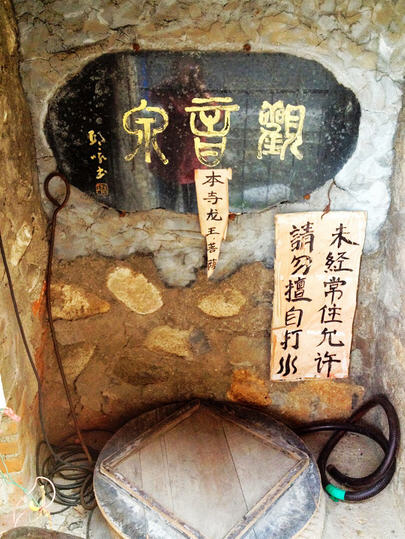 觀音泉
本寺龙王菩萨
未经常住允许
請勿擅自打水